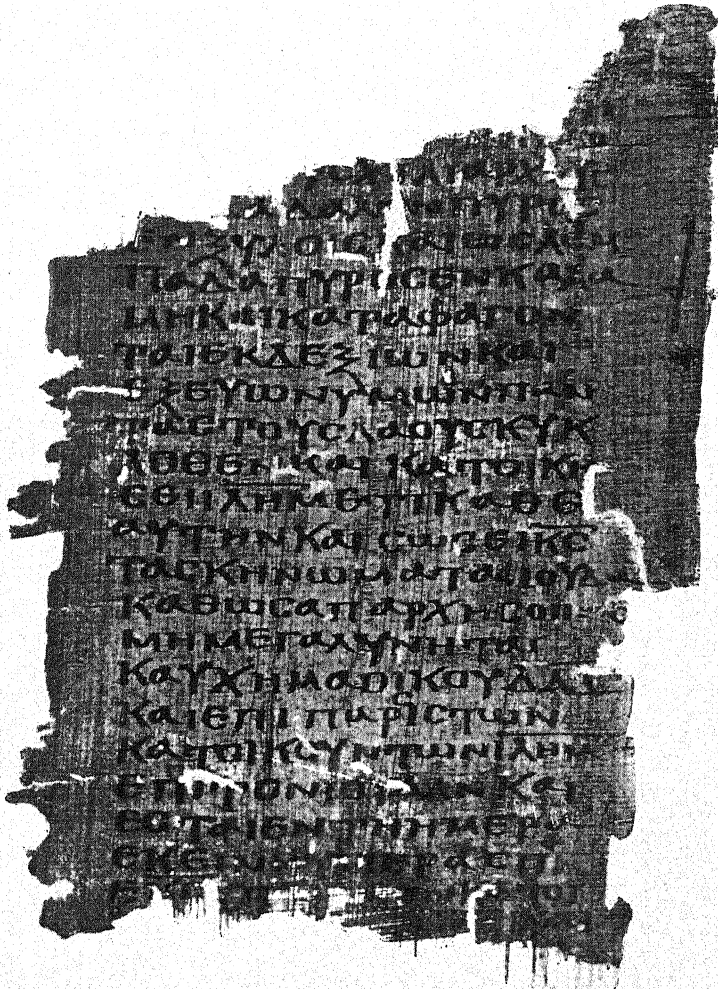 ΔΑΛΟΝ ΠΥΡΟΣ
ΕΝ ΞΥΛΟΙΣ ΚΑΙ ΩΣ ΛΕΜ
ΠΑΔΑ ΠΥΡΟΣ ΕΝ ΚΑΛΑ
ΜΗ ΚΑΙ ΚΑΤΑΦΑΓΟΝ
ΤΑΙ ΕΚ ΔΕΞΙΩΝ ΚΑΙ
ΕΞ ΕΥΩΝΥΜΩΝ ΠΑΝ
ΤΑΣ ΤΟΥΣ ΛΑΟΥΣ ΚΥΚ
ΛΟΘΕΝ ΚΑΙ ΚΑΤΟΙΚΗ
ΣΕΙ ΙΛΗΜ ΕΤΙ ΚΑΘ Ε
ΑΥΤΗΝ ΚΑΙ ΣΩΣΕΙ ΚΣ
ΤΑ ΣΚΗΝΩΜΑΤΑ ΙΟΥΔΑ
ΚΑΘΩΣ ΑΠ ΑΡΧΗΣ ΟΠΩΣ
ΜΗ ΜΕΓΑΛΥΝΗΤΑΙ
ΚΑΥΧΗΜΑ ΟΙΚΟΥ ΔΑΔ
ΚΑΙ ΕΠΑΡΣΙΣ ΤΩΝ
ΚΑΤΟΙΚΟΥΝΤΩΝ ΙΛΗΜ
ΕΠΙ ΤΟΝ ΙΟΥΔΑΝ ΚΑΙ
ΕΣΤΑΙ ΕΝ ΤΗ ΗΜΕΡΑ
ΕΚΕΙΝΗ